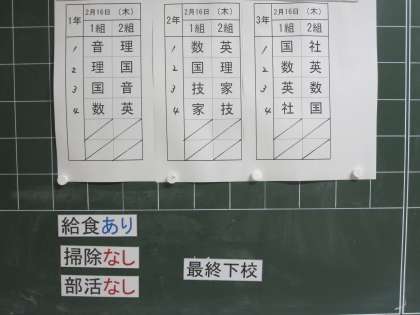 1年 2月16日 (木)
1組 2組
1 音 理
2 理 国
3 国 音
4 数 英
2年 2月16日 (木)
1組 2組
1 数 英
2 国 理
3 技 家
4 家 技
3年 2月16日 (木)
1組 2組
1 国 社
2 数 英
3 英 数
4 社 国
給食あり
掃除なし
部活なし
最終下校